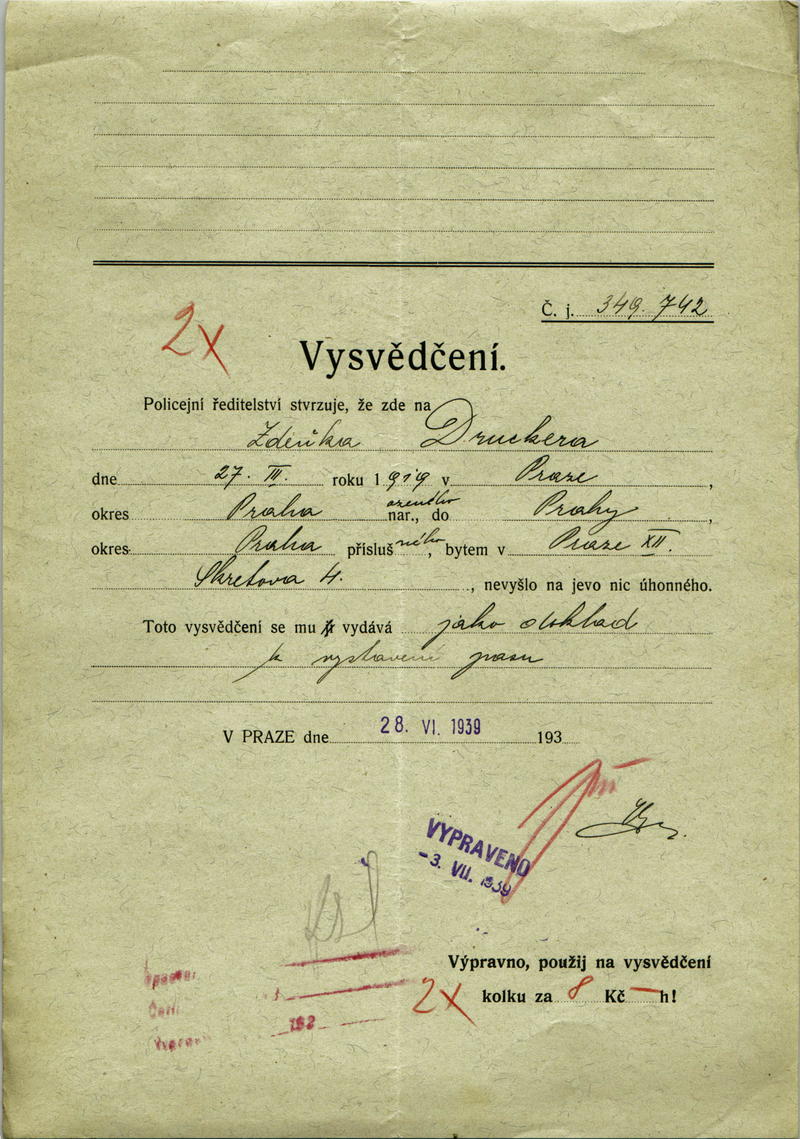 Č. j. 349.742
2x
Vysvědčení.
Policejní ředitelství stvrzuje, že zde na
Zdeňka Druckera
dne 27. III. roku 1919 v Praze,
ozeného
okres Praha nar., do Prahy,
okres Praha přísluš ného, bytem v Praze XII.
Skretova 4. , nevyšlo na jevo nic úhonného.
Toto vysvědčení se mu vydává jako doklad
k vystavení pasu
V PRAZE dne 28. VI. 1939 193
VYPRAVENO
-3. VII. 1939
Výpravno, použij na vysvědčení
2x kolku za 8 Kč — h!
193